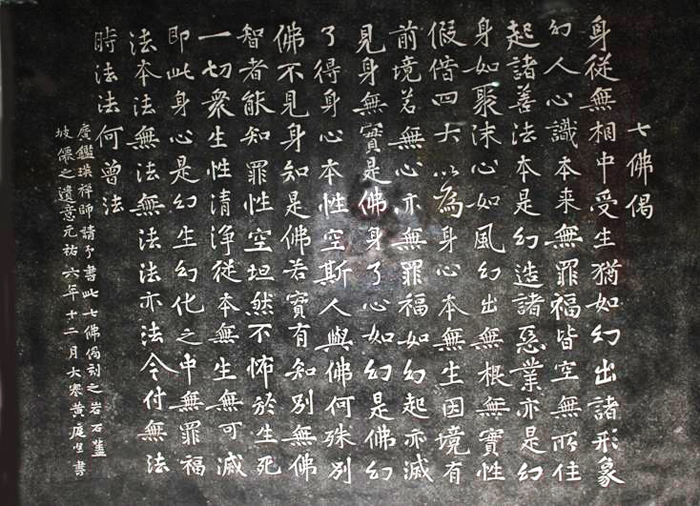 七佛偈
身從無相中受生猶如幻出諸形象
幻人心識本来無罪福皆空無所住
起諸善法本是幻造諸惡業亦是幻
身如聚沫心如風幻出無根無實性
假借四大以為身心本無生因境有
前境若無心亦無罪福如幻起亦滅
見身無實是佛身了心如幻是佛幻
了得身心本性空斯人與佛何殊別
佛不見身知是佛若實有知別無佛
智者能知罪性空坦然不怖於生死
一切衆生性清淨從本無生無可滅
即此身心是幻生幻化之中無罪福
法本法無法無法法亦法今付無法
時法法何曾法
廣鑑瑛禅師請予書此七佛偈刻之岩石蓋
坡僊之遺意元祐六年十二月大寒黃庭坚書